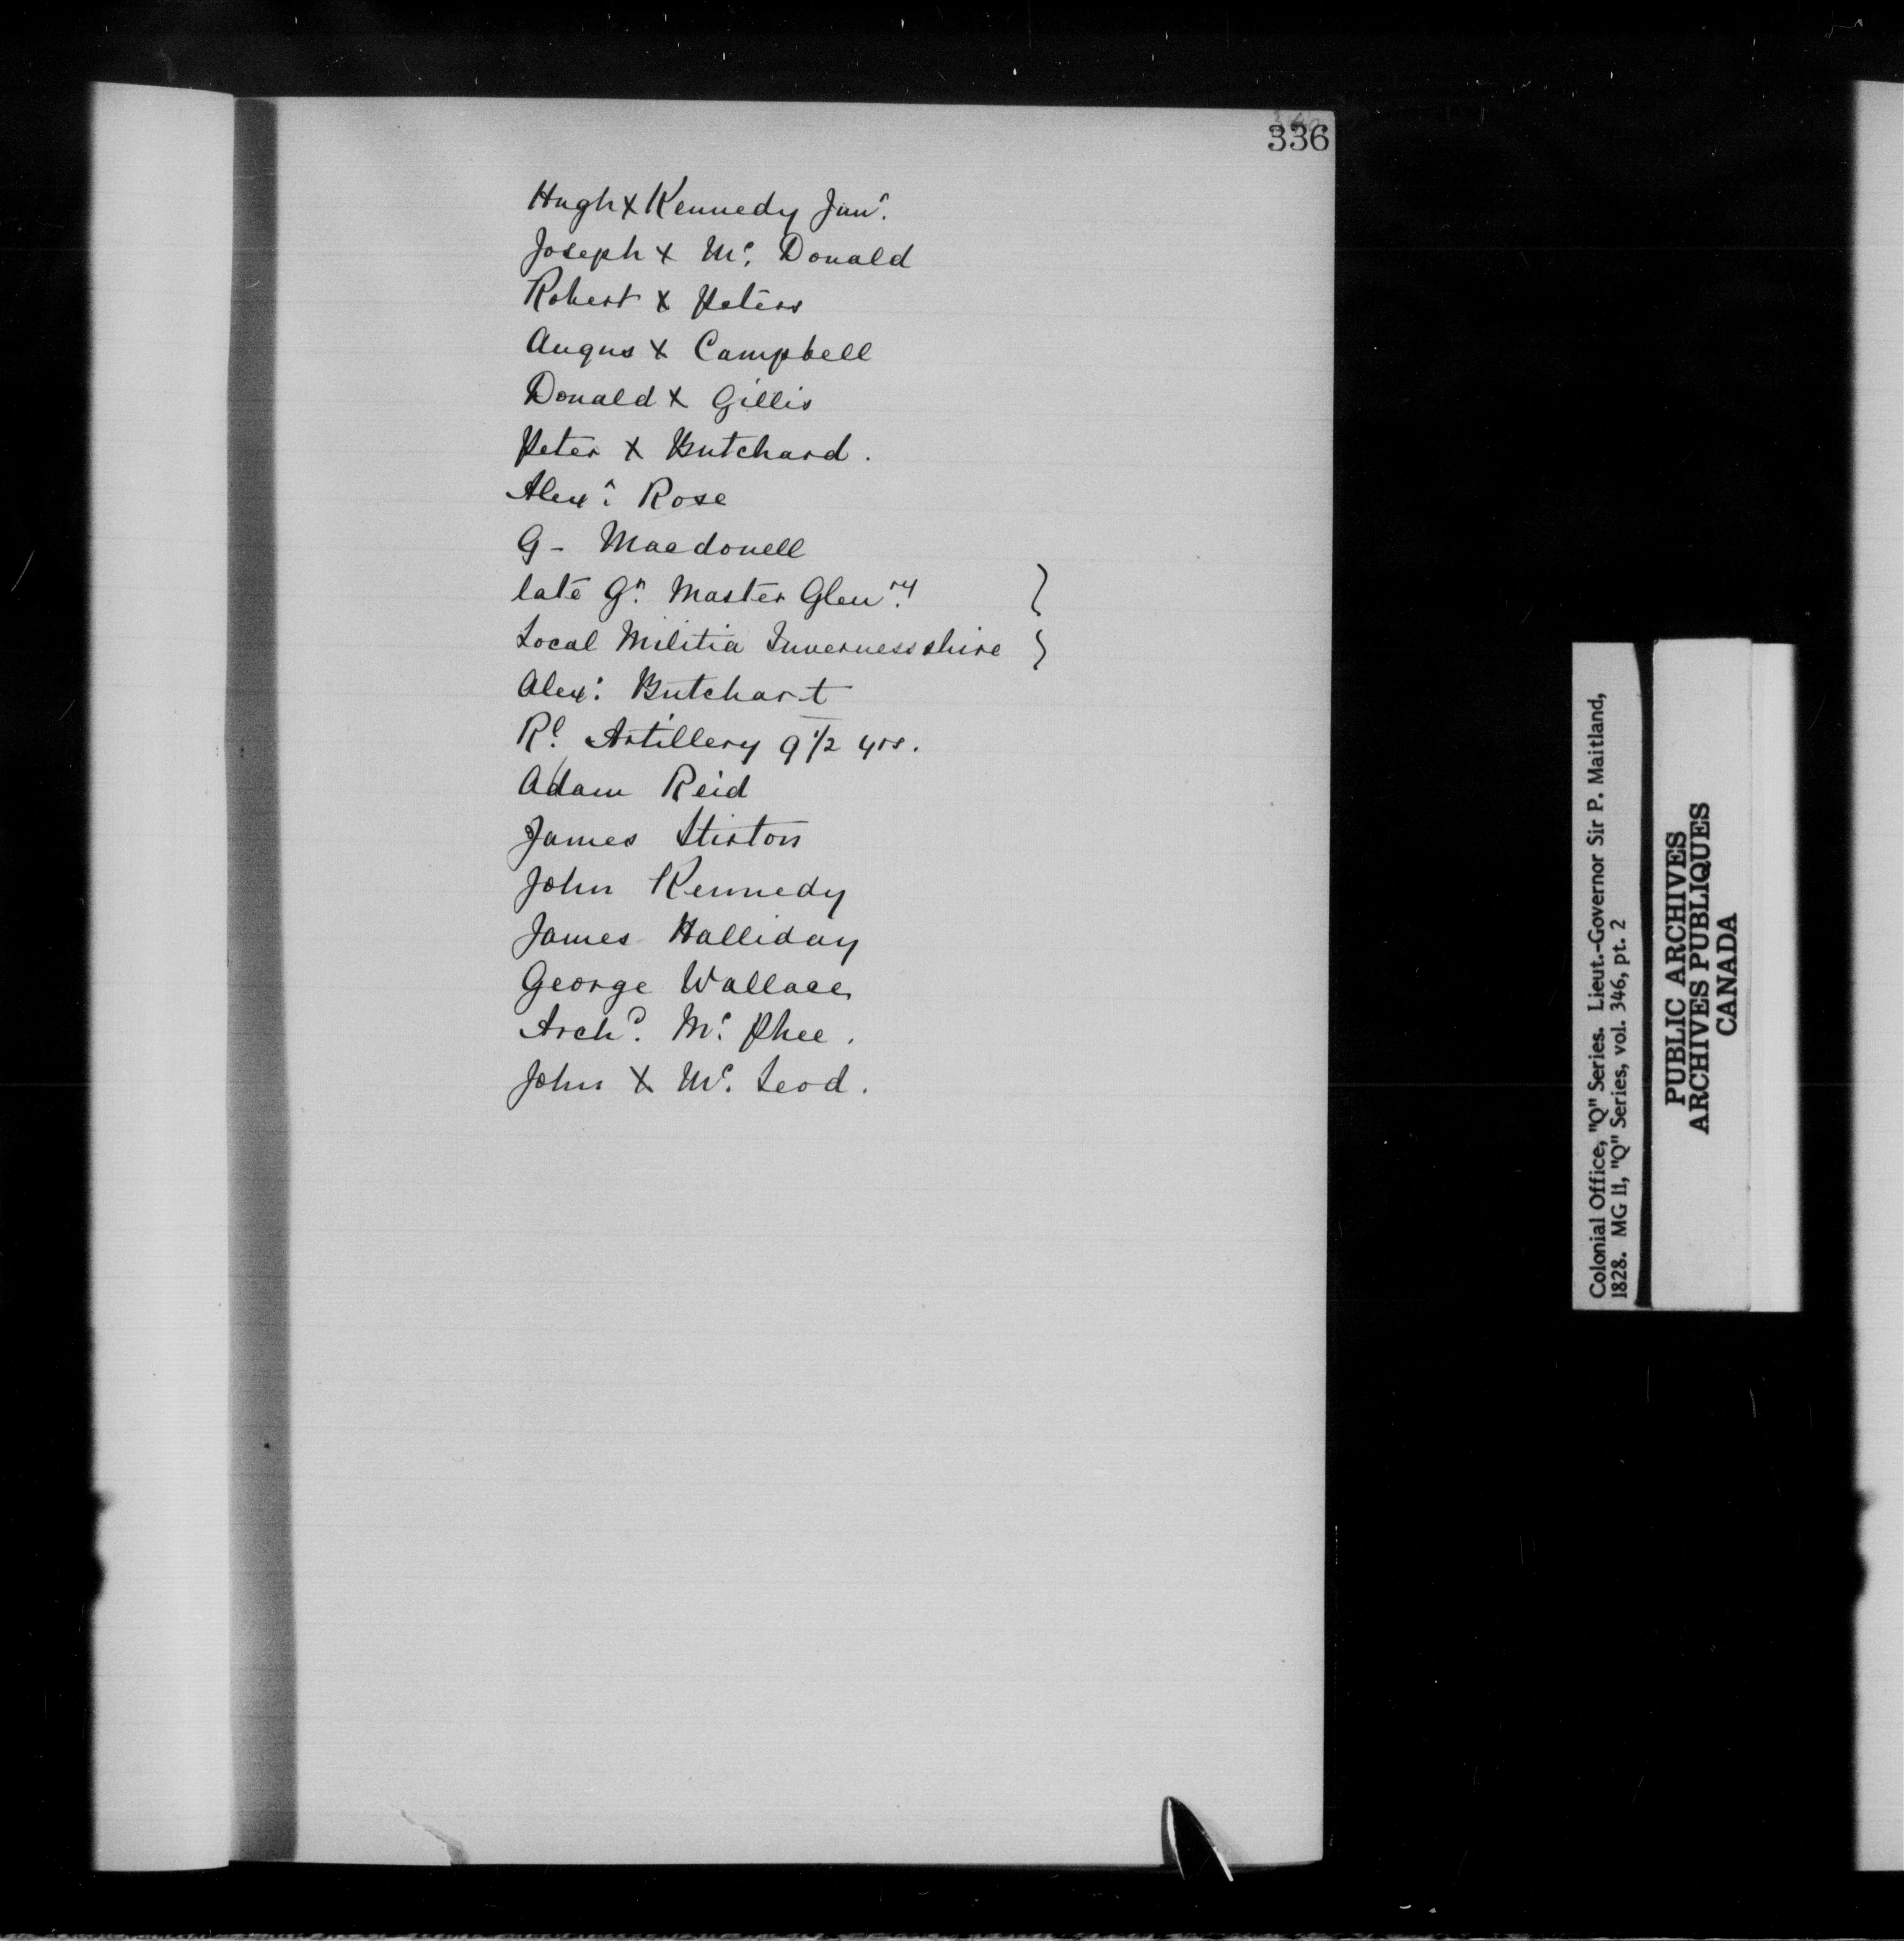 336
Hugh x Kennedy Junr.
Joseph x Mc. Donald
Robert x Peters
Angus x Campbell
Donald x Gillis
Peter x Butchard.
Alexr. Rose
G - Macdonell
late Qr. Master Glenry. }
Local Militia Invernessshire }
Alex: Butchart
Rl. Artillery 9 1/2 yrs.
Adam Reid
James Stirton
John Kennedy
James Halliday
George Wallace
Archd. Mc. Phee.
John x Mc. Leod.
Colonial Office, "Q" Series. Lieut.-Governor Sir P. Maitland,
1828. MG 11, "Q" Series, vol. 346, pt. 2
PUBLIC ARCHIVES
ARCHIVES PUBLIQUES
CANADA